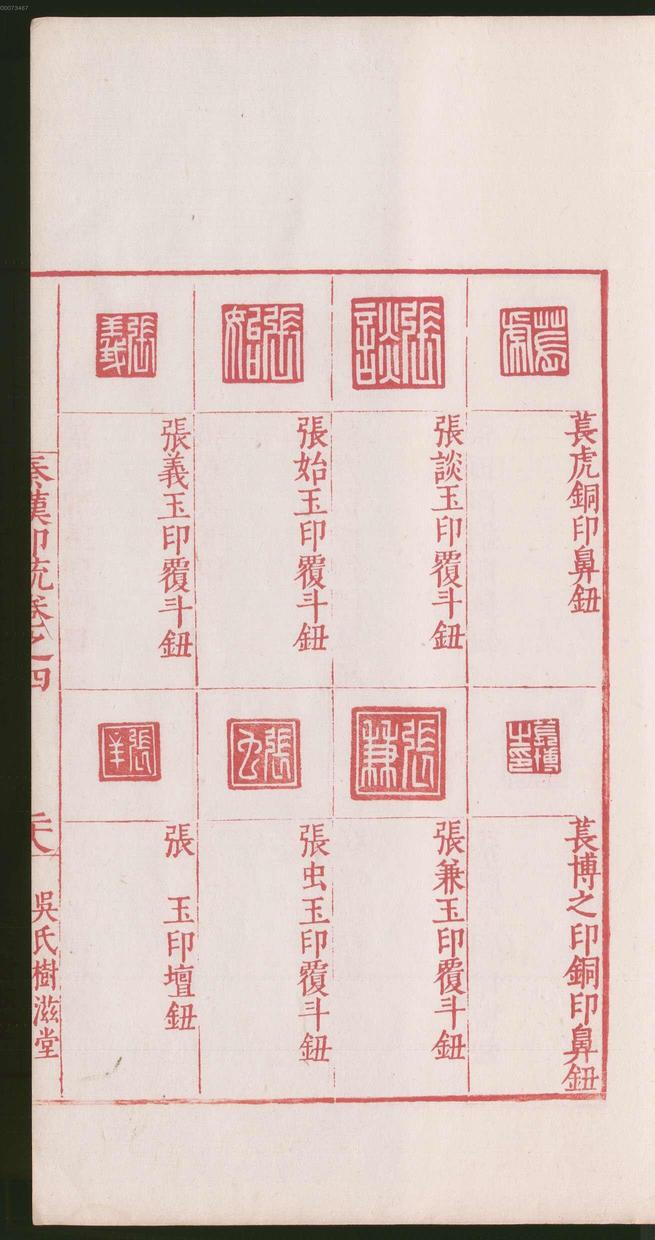 萇虎銅印鼻鈕
萇博之印銅印鼻鈕
張談玉印覆斗鈕
張兼玉印覆斗鈕
張始玉印覆斗鈕
張虫玉印覆斗鈕
張義玉印覆斗鈕
張　玉印壇鈕
秦漢印統卷之四
吳氏樹滋堂
00073467